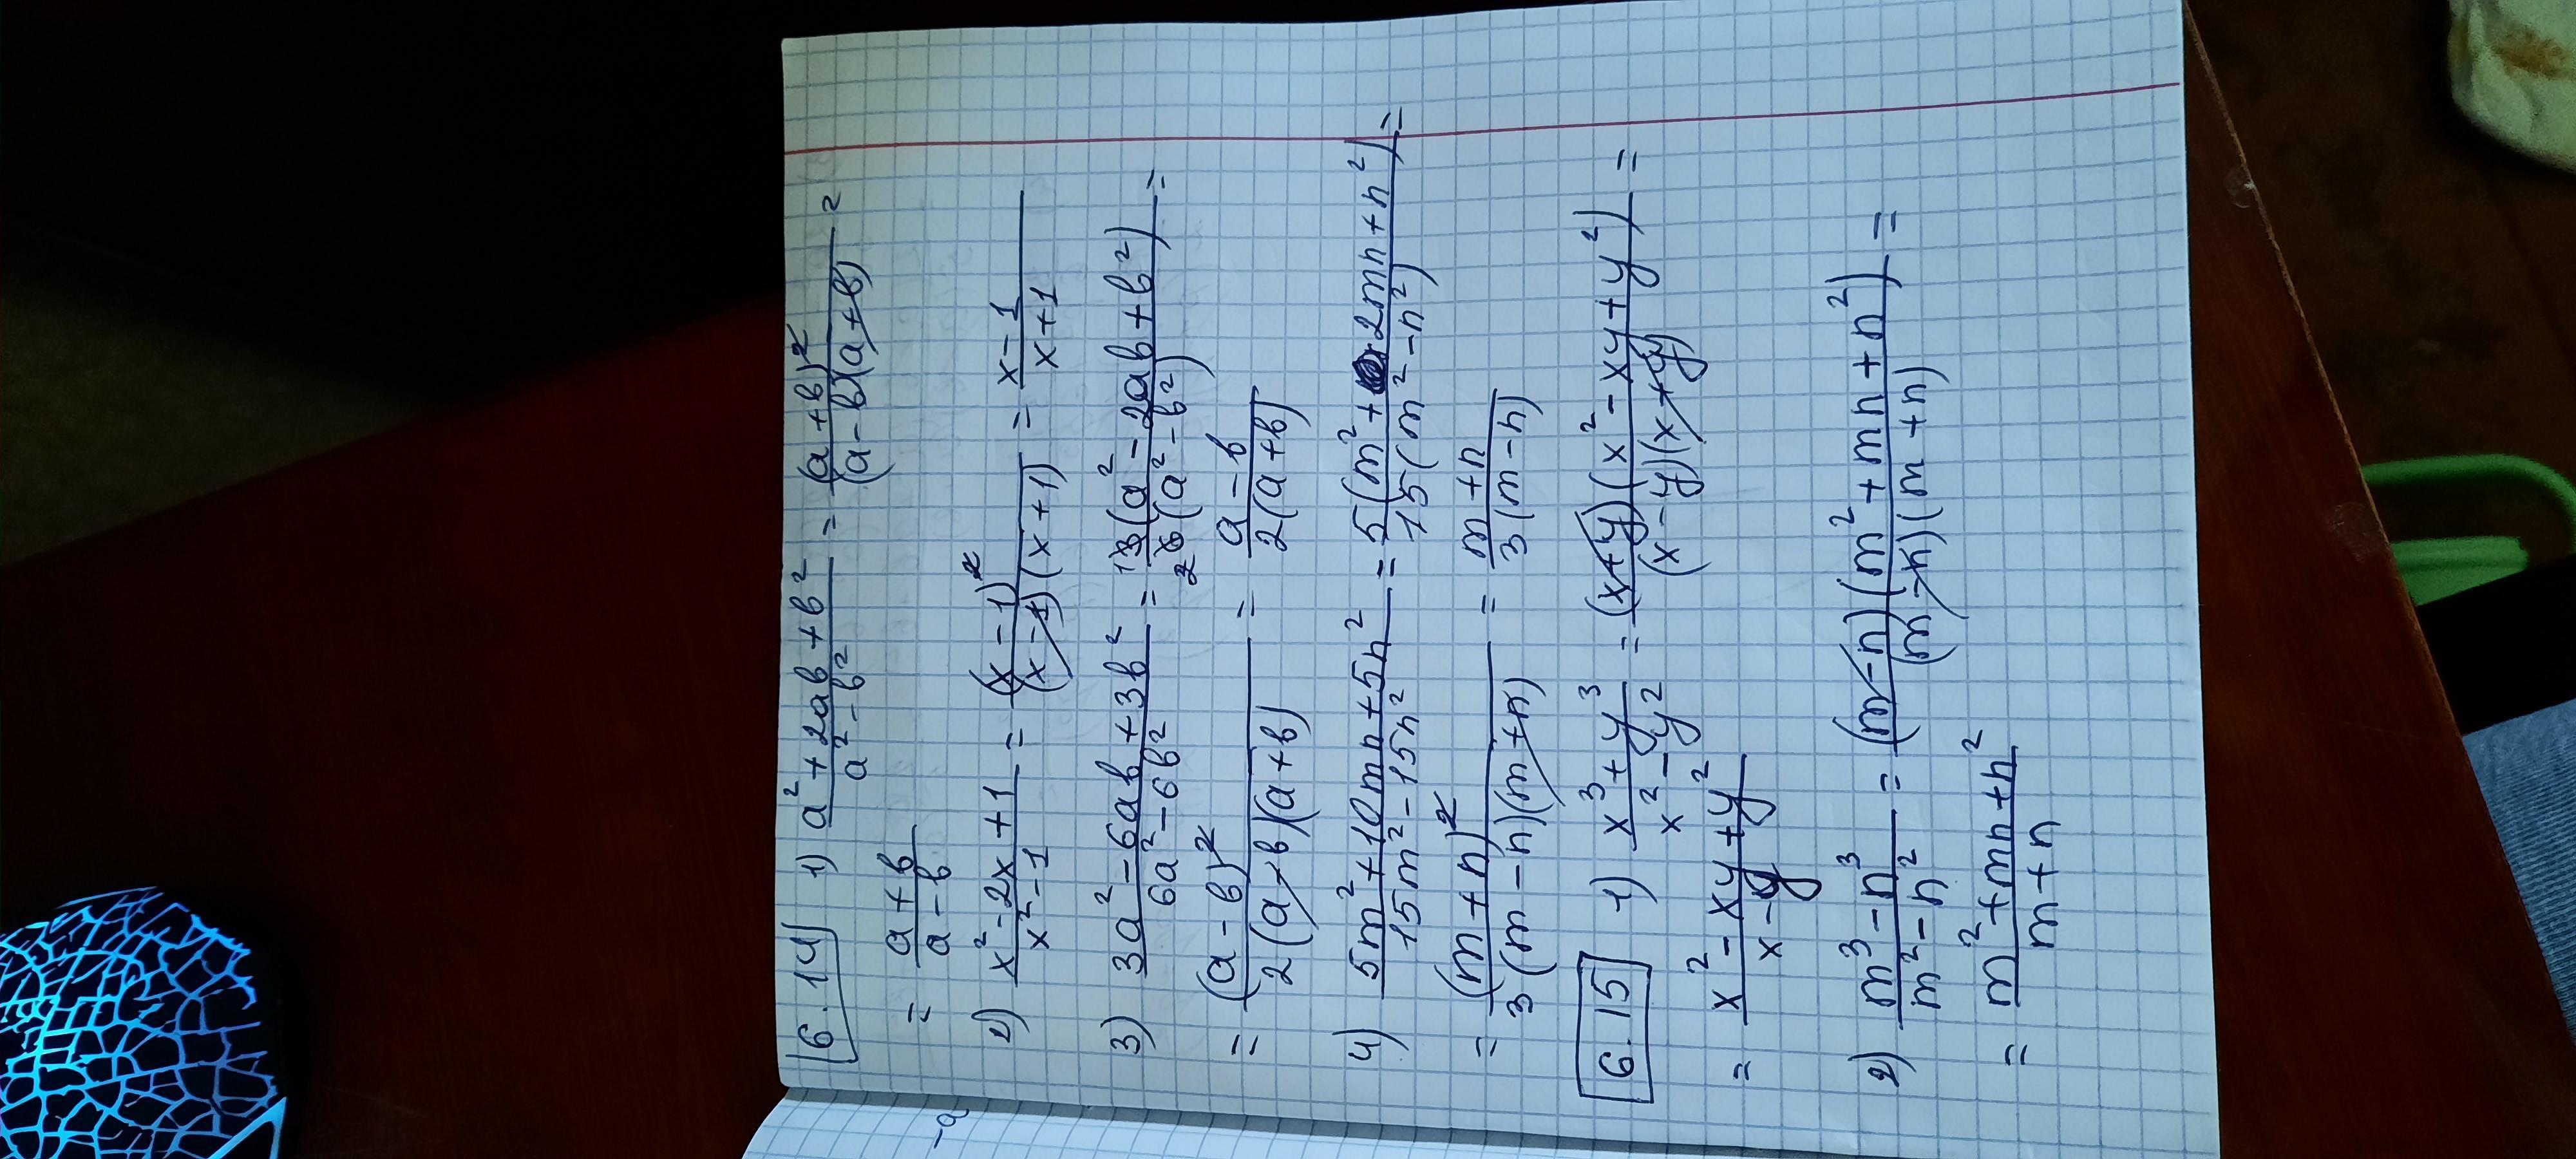 6.14 1) (a² + 2ab + b²)/(a² - b²) = (a + b)²/((a - b)(a + b)) =
= (a + b)/(a - b)
2) (x² - 2x + 1)/(x² - 1) = (x - 1)²/((x - 1)(x + 1)) = (x - 1)/(x + 1)
3) (3a² - 6ab + 3b²)/(6a² - 6b²) = 1 3(a² - 2ab + b²)/(2 6(a² - b²)) =
= (a - b)²/(2(a - b)(a + b)) = (a - b)/(2(a + b))
4) (5m² + 10mn + 5n²)/(15m² - 15n²) = 5(m² + 2mn + n²)/(15(m² - n²)) =
= (m + n)²/(3(m - n)(m + n)) = (m + n)/(3(m - n))
6.15 1) (x³ + y³)/(x² - y²) = (x + y)(x² - xy + y²)/((x - y)(x + y)) =
= (x² - xy + y²)/(x - y)
2) (m³ - n³)/(m² - n²) = (m - n)(m² + mn + n²)/((m - n)(m + n)) =
= (m² + mn + n²)/(m + n)